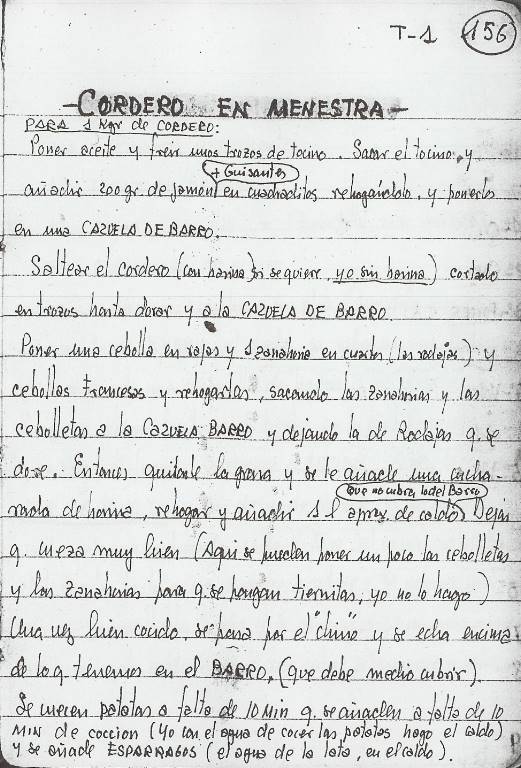 T-1 156
-CORDERO EN MENESTRA-
PARA 1 Kgr de CORDERO:
Poner aceite y freir unos trozos de tocino. Sacar el tocino, y
+ Guisantes
añadir 200 gr. de jamón en cuadraditos rehogándolo, y ponerlo
en una CAZUELA DE BARRO.
Saltear el cordero (con harina) si se quiere, yo sin harina) cortado
en trozos hasta dorar y a la CAZUELA DE BARRO.
Poner una cebolla en rajas y 1 zanahoria en cuartos (las rodajas) y
cebollas francesas y rehogarlas, sacando las zanahorias y las
cebolletas a la CAZUELA BARRO y dejando la de Rodajas q. se
dore. Entonces quitarle la grasa y se le añade una cucha-
Que no cubra lo del Barro
rada de harina, rehogar y añadir 1 l aprox. de caldo. Dejar
q. cueza muy bien (Aqui se pueden poner un poco las cebolletas
y las zanahorias para q. se pongan tiernitas, yo no lo hago)
Una vez bien cocido, se pasa por el "chino" y se echa encima
de lo q. tenemos en el BARRO, (que debe medio cubrir).
Se cuecen patatas a falta de 10 Min q. se añaden a falta de 10
MIN de coccion (Yo con el agua de cocer las patatas hago el caldo)
y se añade ESPARRAGOS (el agua de la lata, en el caldo).